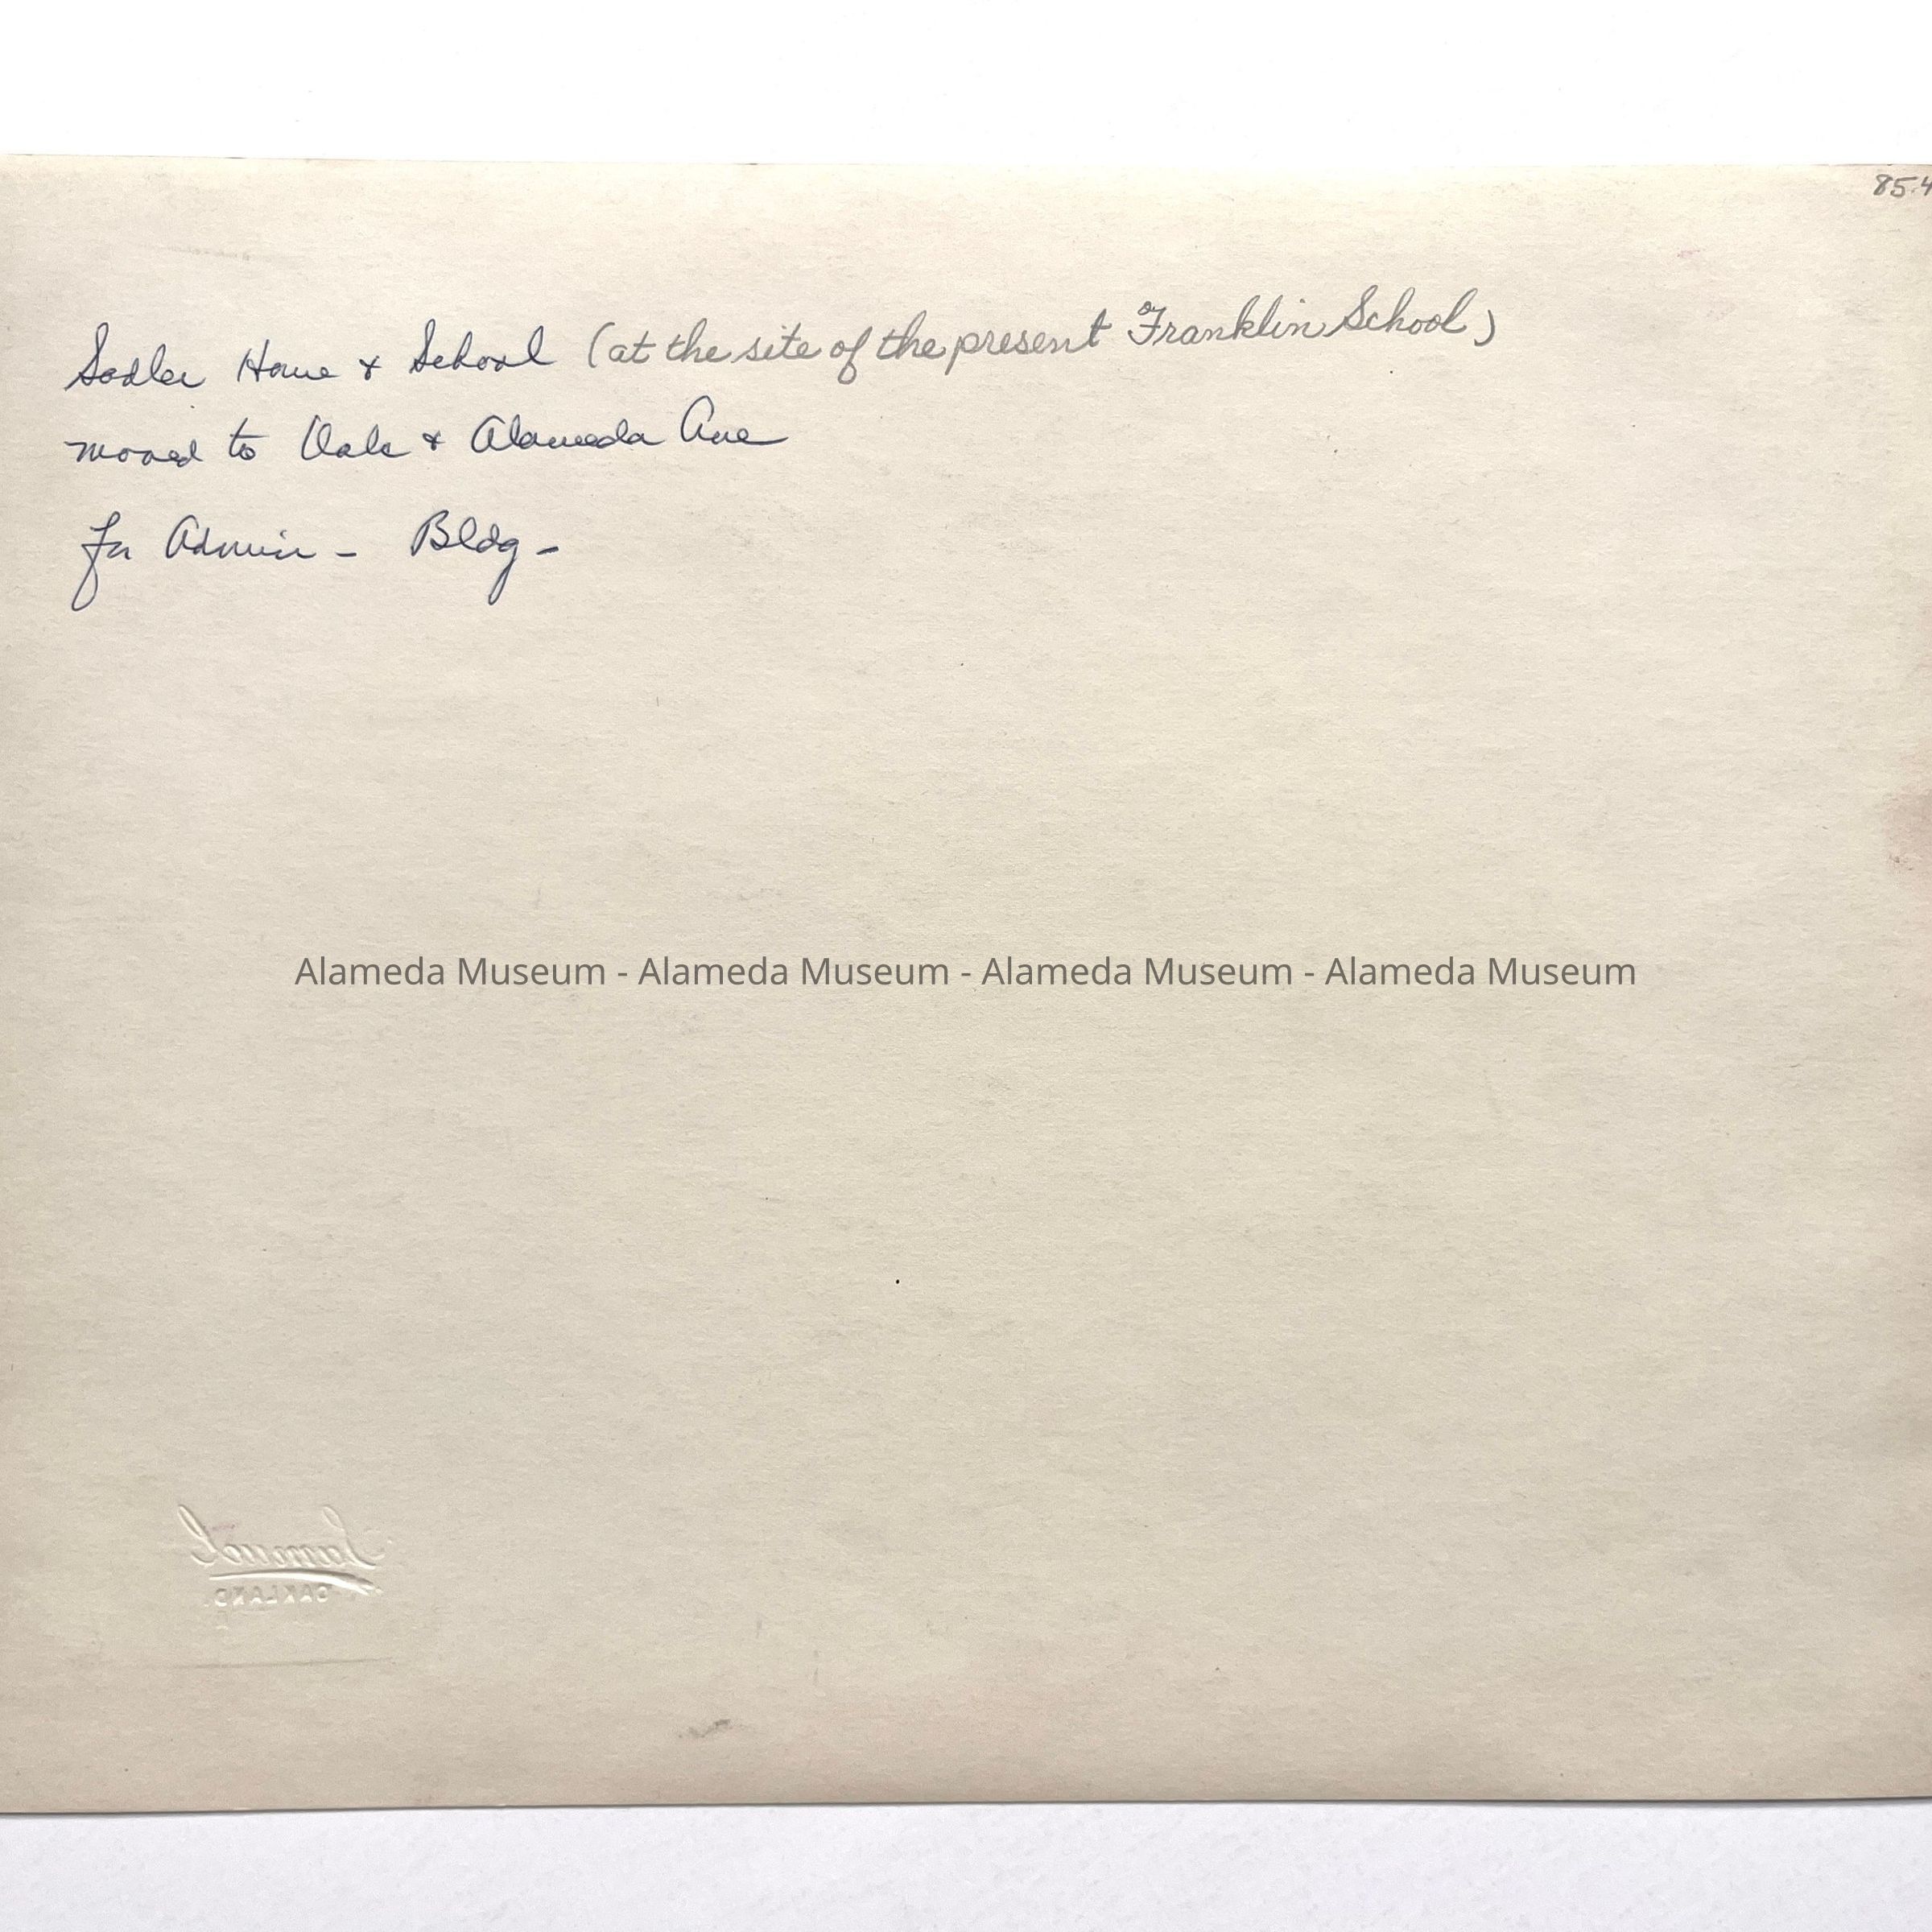 85.4
Sadler Home & School (at the site of the present Franklin School)
moved to Oak & Alameda Ave
for Admin - Bldg -
Alameda Museum - Alameda Museum - Alameda Museum - Alameda Museum
Samuel
OAKLAND